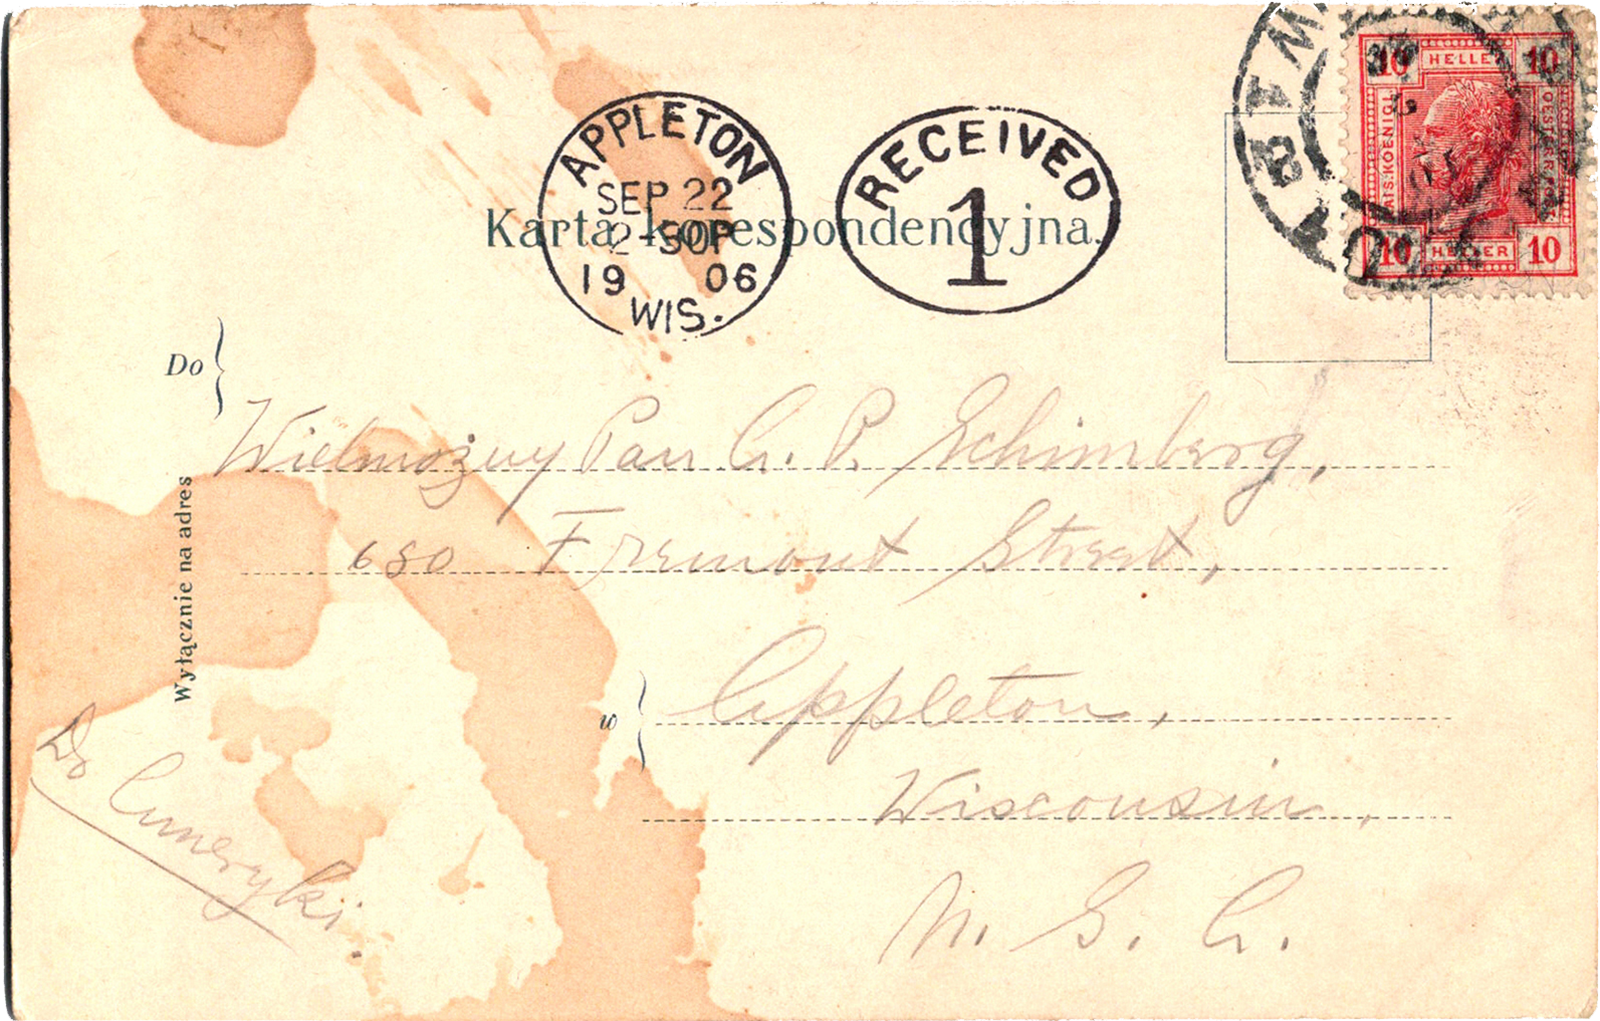 APPLETON
SEP 22
2-30P
19 06
WIS.
RECEIVED
1
10 HELLER 10
10 HELLER 10
Karta korespondencyjna.
Do
Wielmożny Pan A. P. Schimberg,
680 Fremont Street,
w
Appleton,
Wisconsin,
U. S. A.
Wyłącznie na adres
Do Ameryki.